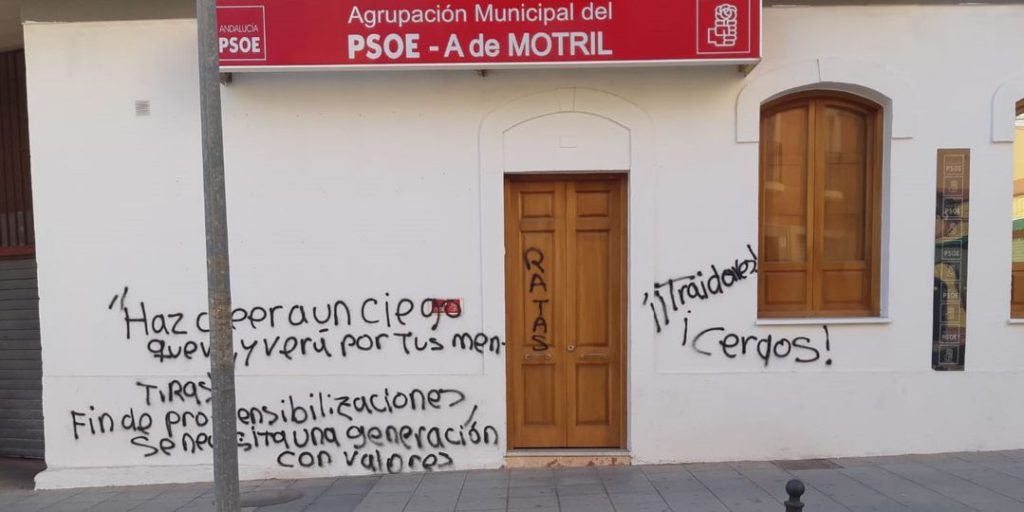 ANDALUCÍA
PSOE
Agrupación Municipal del
PSOE - A de MOTRIL
"Haz creer a un ciego
que ve, y verá por tus men-
TIRAS"
Fin de pro sensibilizaciones
Se necesita una generación
con valores
RATAS
¡¡Traidores!
¡Cerdos!
PSOE
PSOE
PSOE
PSOE
PSOE